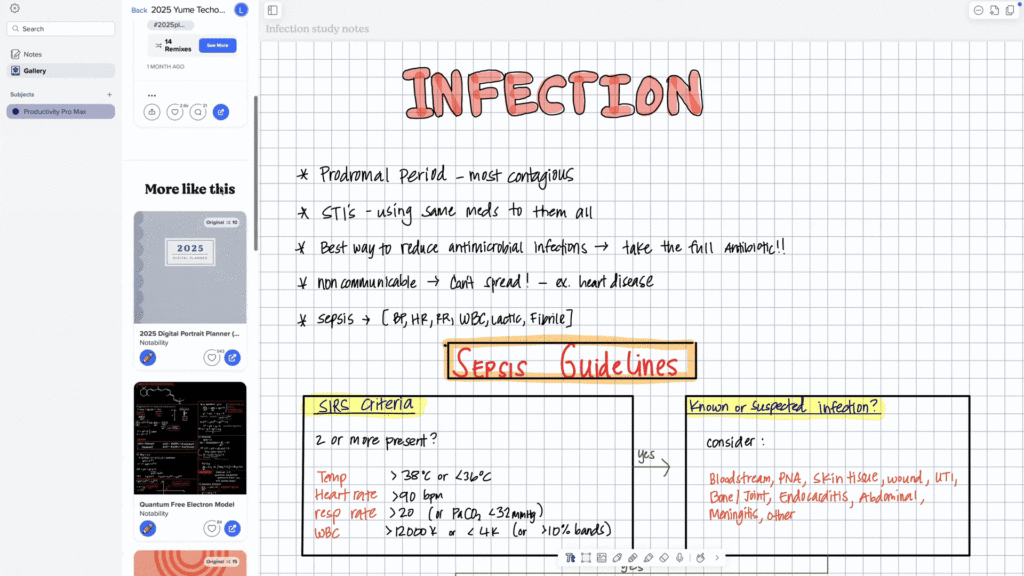 Search
Notes
Gallery
Subjects
+
Productivity Pro Max
Back 2025 Yume Techo... L
#2025pl...
14 Remixes
See More
1 MONTH AGO
...
2.6k
21
More like this
Original 10
2025
DIGITAL PLANNER
2025 Digital Portrait Planner (...
Notability
543
Quantum Free Electron Model
Notability
Original 15
Infection study notes
INFECTION
* Prodromal period - most contagious
* STI's - using same meds to them all
* Best way to reduce antimicrobial infections → take the full Antibiotic!!
* non communicable → Can't spread! - ex. heart disease
* sepsis → [BP, HR, RR, WBC, Lactic, Fibrile]
SEPSIS Guidelines
SIRS Criteria
2 or more present?
Temp >38°C or <36°C
Heart rate >90 bpm
resp rate >20 (or PaCO2 <32mmHg)
WBC >12000K or <4K (or >10% bands)
yes
Known or suspected infection?
consider:
Bloodstream, PNA, Skin tisque, wound, UTI,
Bone/Joint, Endocarditis, Abdominal,
Meningitis, other
Tt
yes